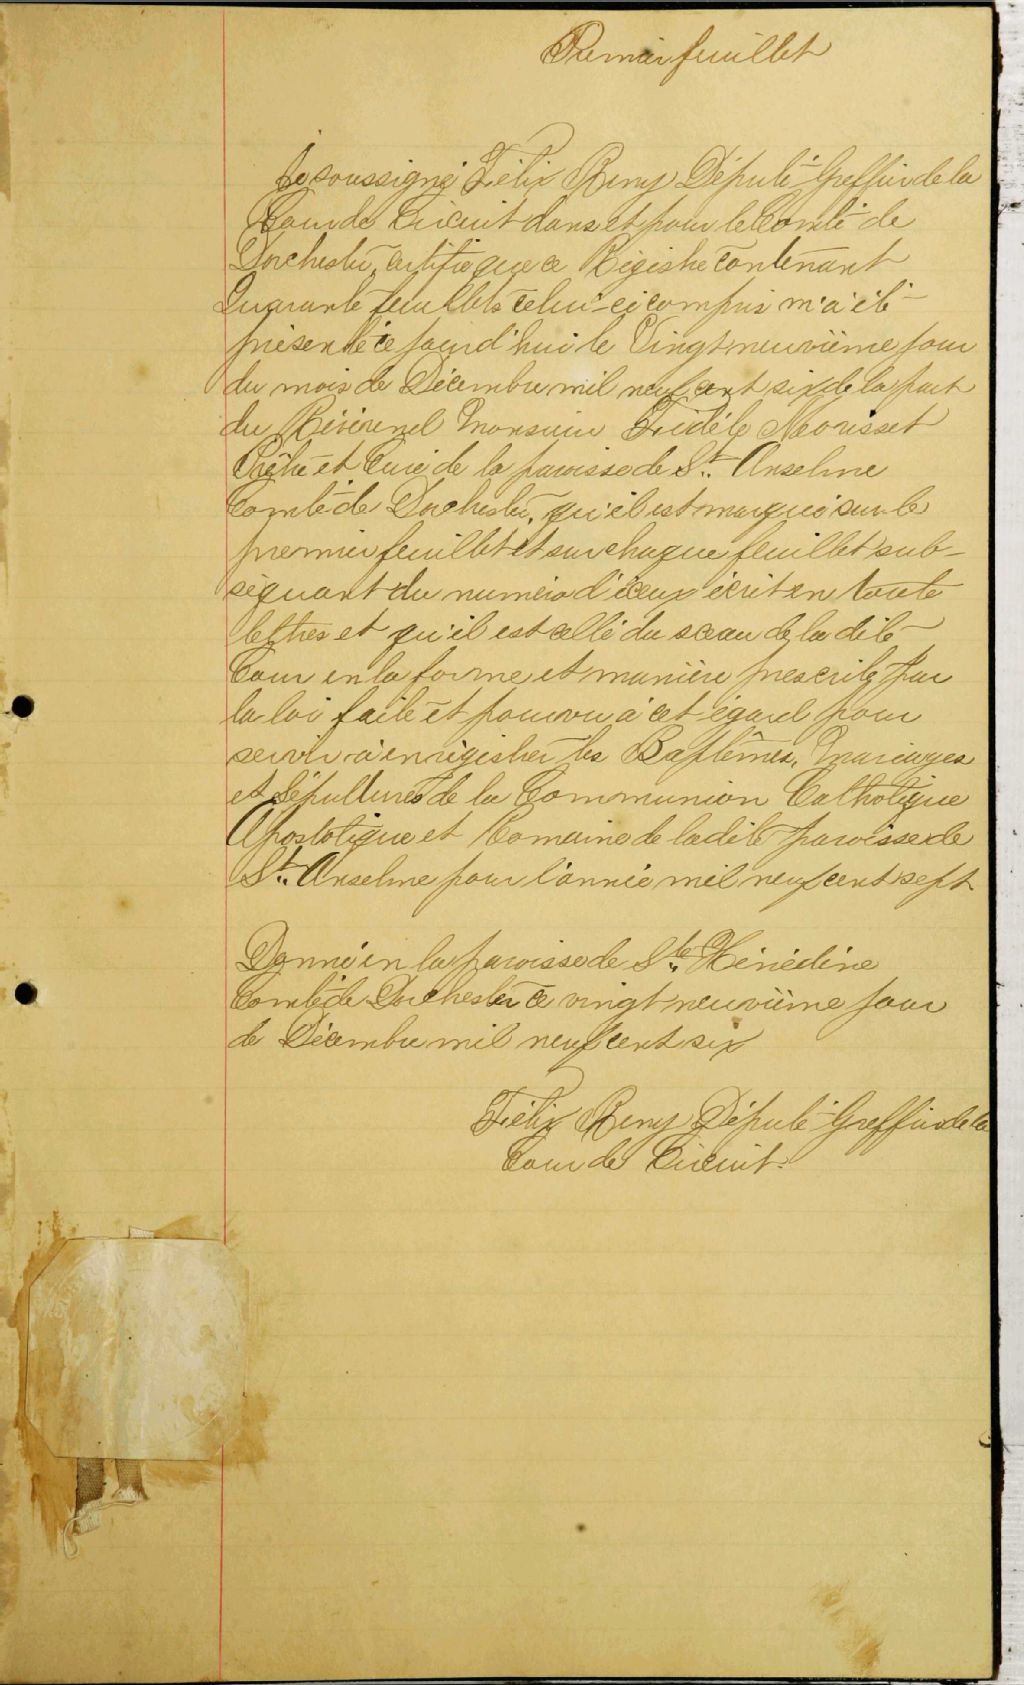 Premier feuillet
Je soussigné Félix Remy Député-Greffier de la
Cour de Circuit dans et pour le Comté de
Dorchester, certifie que ce Régistre contenant
Quarante feuillets celui-ci compris m'a été
présenté ce jourd'hui le Vingt neuvième jour
du mois de Décembre mil neuf cent six de la part
du Révérend Monsieur Fidèle Morisset
Prêtre et Curé de la paroisse de St. Anselme
Comté de Dorchester, qu'il est marqué sur le
premier feuillet et sur chaque feuillet sub-
séquant du numéro d'iceux écrit en toute
lettres et qu'il est cellé du sceau de la dite
Cour en la forme et manière prescrite par
la loi faite et pourvu à cet égard pour
servir à enrégistrer les Baptêmes, Mariages
et Sépultures de la Communion Catholique
Apostolique et Romaine de la dite paroisse de
St. Anselme pour l'année mil neuf cent sept
Donné en la paroisse de Ste. Hénédine
Comté de Dorchester ce vingt neuvième jour
de Décembre mil neuf cent six
Félix Remy Député-Greffier de la
Cour de Circuit.